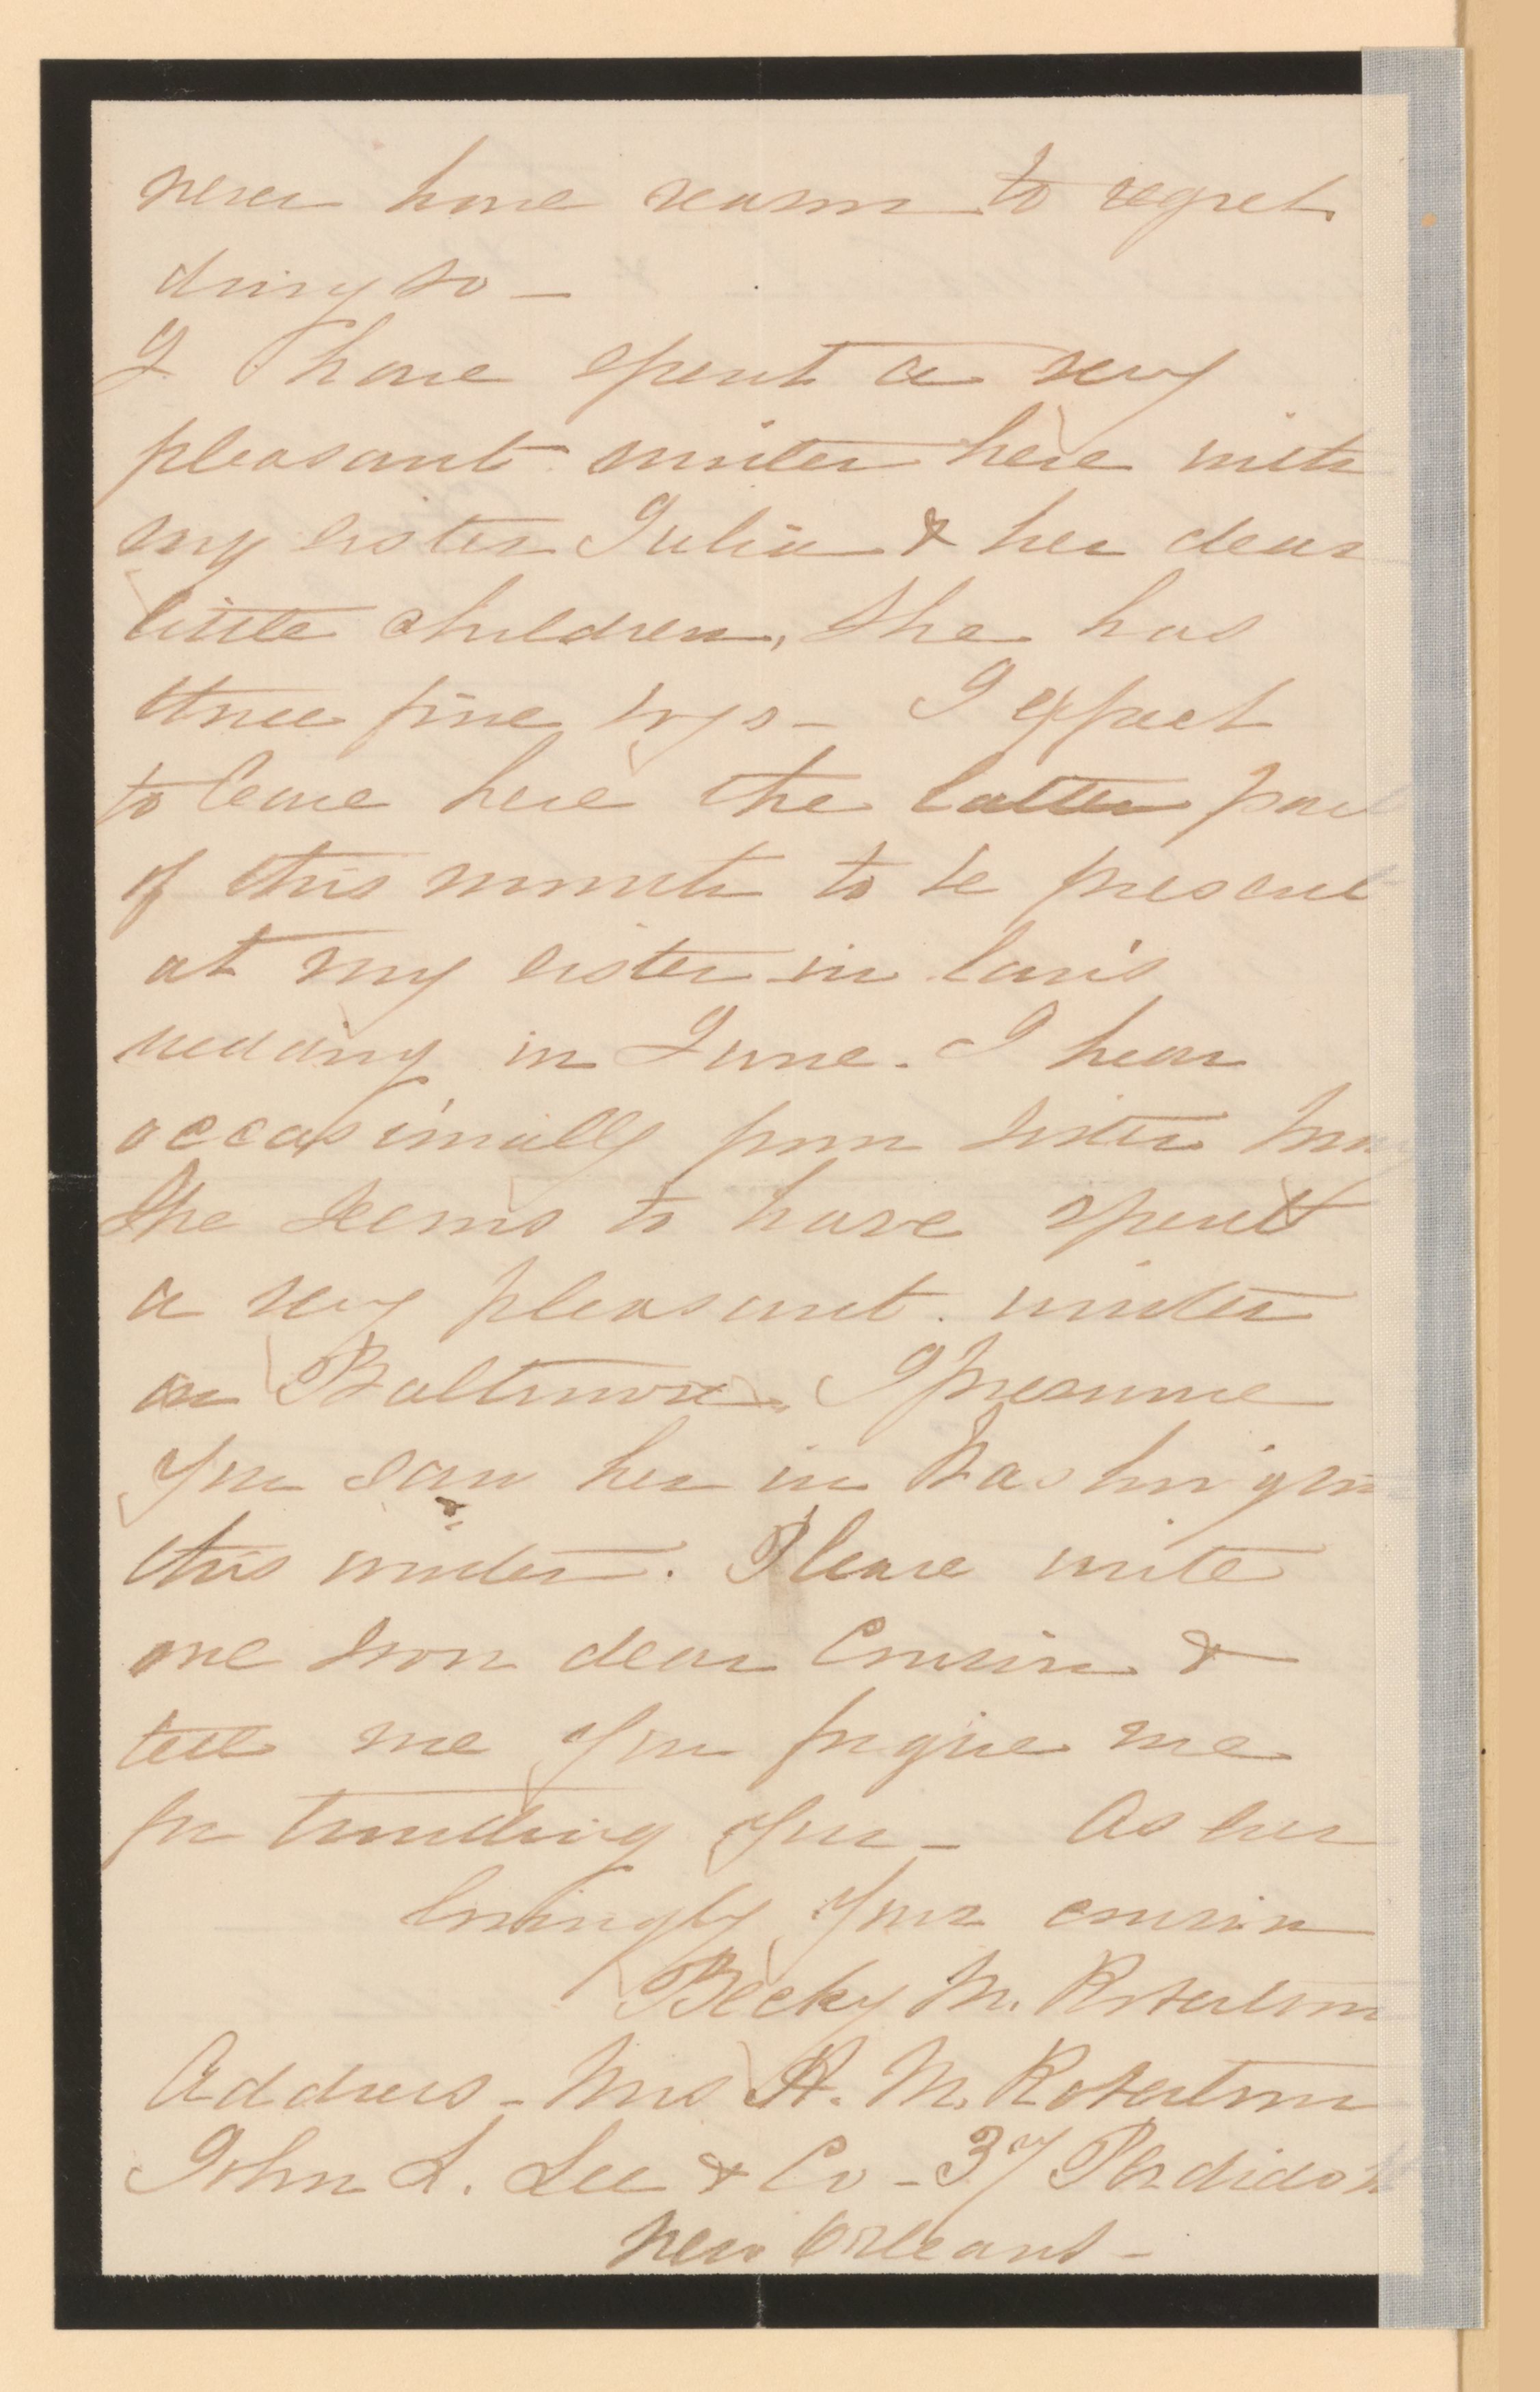 never have reason to regret
doing so —
I have spent a very
pleasant winter here with
my sister Julia & her dear
little children, She has
three fine boys — I expect
to leave here the latter part
of this month to be present
at my sister in law's
wedding in June. I hear
occasionally from Sister May
She seems to have spent
a very pleasant winter
in Baltimore. I presume
you saw her in Washington
this winter. Please write
me soon dear Cousin &
tell me you forgive me
for troubling you — As ever
lovingly your cousin
Becky M. Robertson
Address — Mrs H. M. Robertson
John L. Lee & Co — 37 Perdido St
New Orleans —